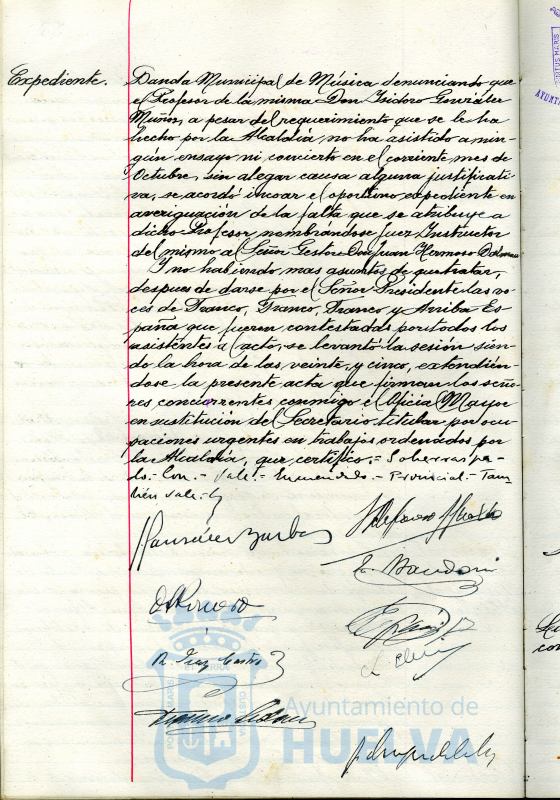 Expediente.
Banda Municipal de Música denunciando que
el Profesor de la misma Don Isidoro González
Muñoz, a pesar del requerimiento que se le ha
hecho por la Alcaldía, no ha asistido a nin-
gún ensayo ni concierto en el corriente mes de
Octubre, sin alegar causa alguna justificati-
va, se acordó incoar el oportuno expediente en
averiguación de la falta que se atribuye a
dicho Profesor nombrándose Juez Instructor
del mismo al Señor Gestor Don Juan Hermoso
Y no habiendo mas asuntos de que tratar,
despues de darse por el Señor Presidente las vo-
ces de Franco, Franco, Franco y Arriba Es-
paña que fueron contestadas por todos los
asistentes al acto, se levantó la sesión sien-
do la hora de las veinte, y cinco, extendién-
dose la presente acta que firman los seño-
res, concurrentes conmigo el Oficial Mayor
en sustitución del Secretario titular por ocu-
paciones urgentes en trabajos ordenados por
la Alcaldía, que certifico.= Sobrerraspa-
do.- Con.- Vale.- Enmendado.- Provincial.- Tam
bién vale.-
Ayuntamiento de
HUELVA